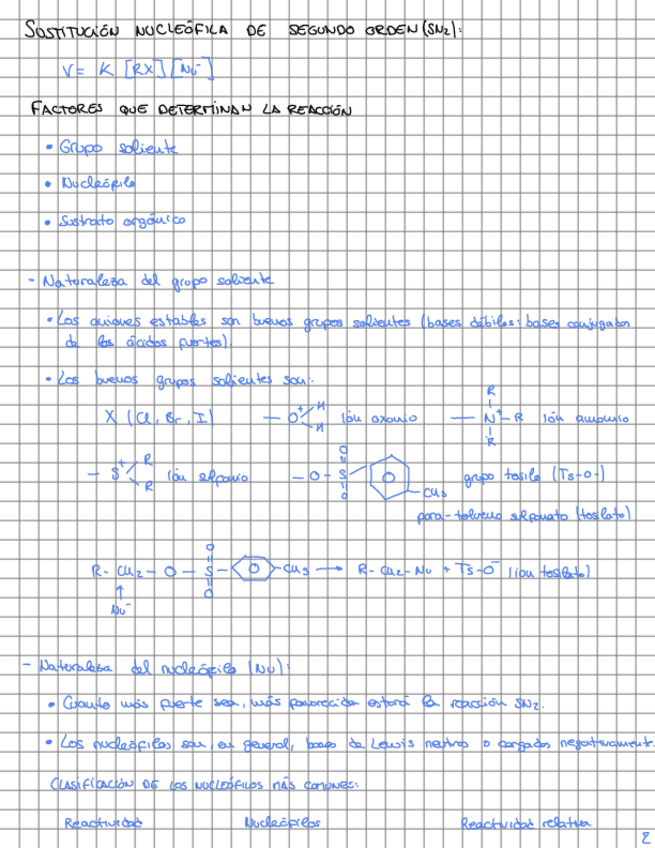 SUSTITUCIÓN NUCLEÓFILA DE SEGUNDO ORDEN (SN2):
V = K [RX] [Nu⁻]
FACTORES QUE DETERMINAN LA REACCIÓN
• Grupo saliente
• Nucleófilo
• Sustrato orgánico
- Naturaleza del grupo saliente
• Los aniones estables son buenos grupos salientes (bases débiles: bases conjugadas
de los ácidos fuertes).
• Los buenos grupos salientes son:
R
X (Cl, Br, I) — O⁺ H H ión oxonio — N⁺ – R ión amonio
R
— S⁺ R R ión sulfonio – O – S O O CH3 grupo tosilo (Ts-O-)
para-tolueno sulfonato (tosilato)
O
R - CH2 – O – S – CH3 → R - CH2 - Nu + Ts-O⁻ (ion tosilato)
O
Nu⁻
- Naturaleza del nucleófilo (Nu):
• Cuanto más fuerte sea, más favorecida estará la reacción SN2.
• Los nucleófilos son, en general, bases de Lewis neutros o cargados negativamente.
CLASIFICACIÓN DE LOS NUCLEÓFILOS MÁS COMUNES:
Reactividad Nucleófilos Reactividad relativa
2